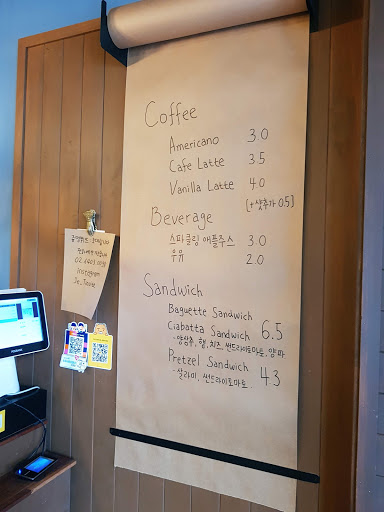 Coffee
Americano 3.0
Cafe Latte 3.5
Vanilla Latte 4.0
(+샷추가 0.5)
Beverage
스파클링 애플주스 3.0
우유 2.0
Sandwich
Baguette Sandwich
Ciabatta Sandwich 6.5
·양상추, 햄, 치즈, 썬드라이토마토, 양파
Pretzel Sandwich 4.3
·살라미, 썬드라이토마토
Instagram